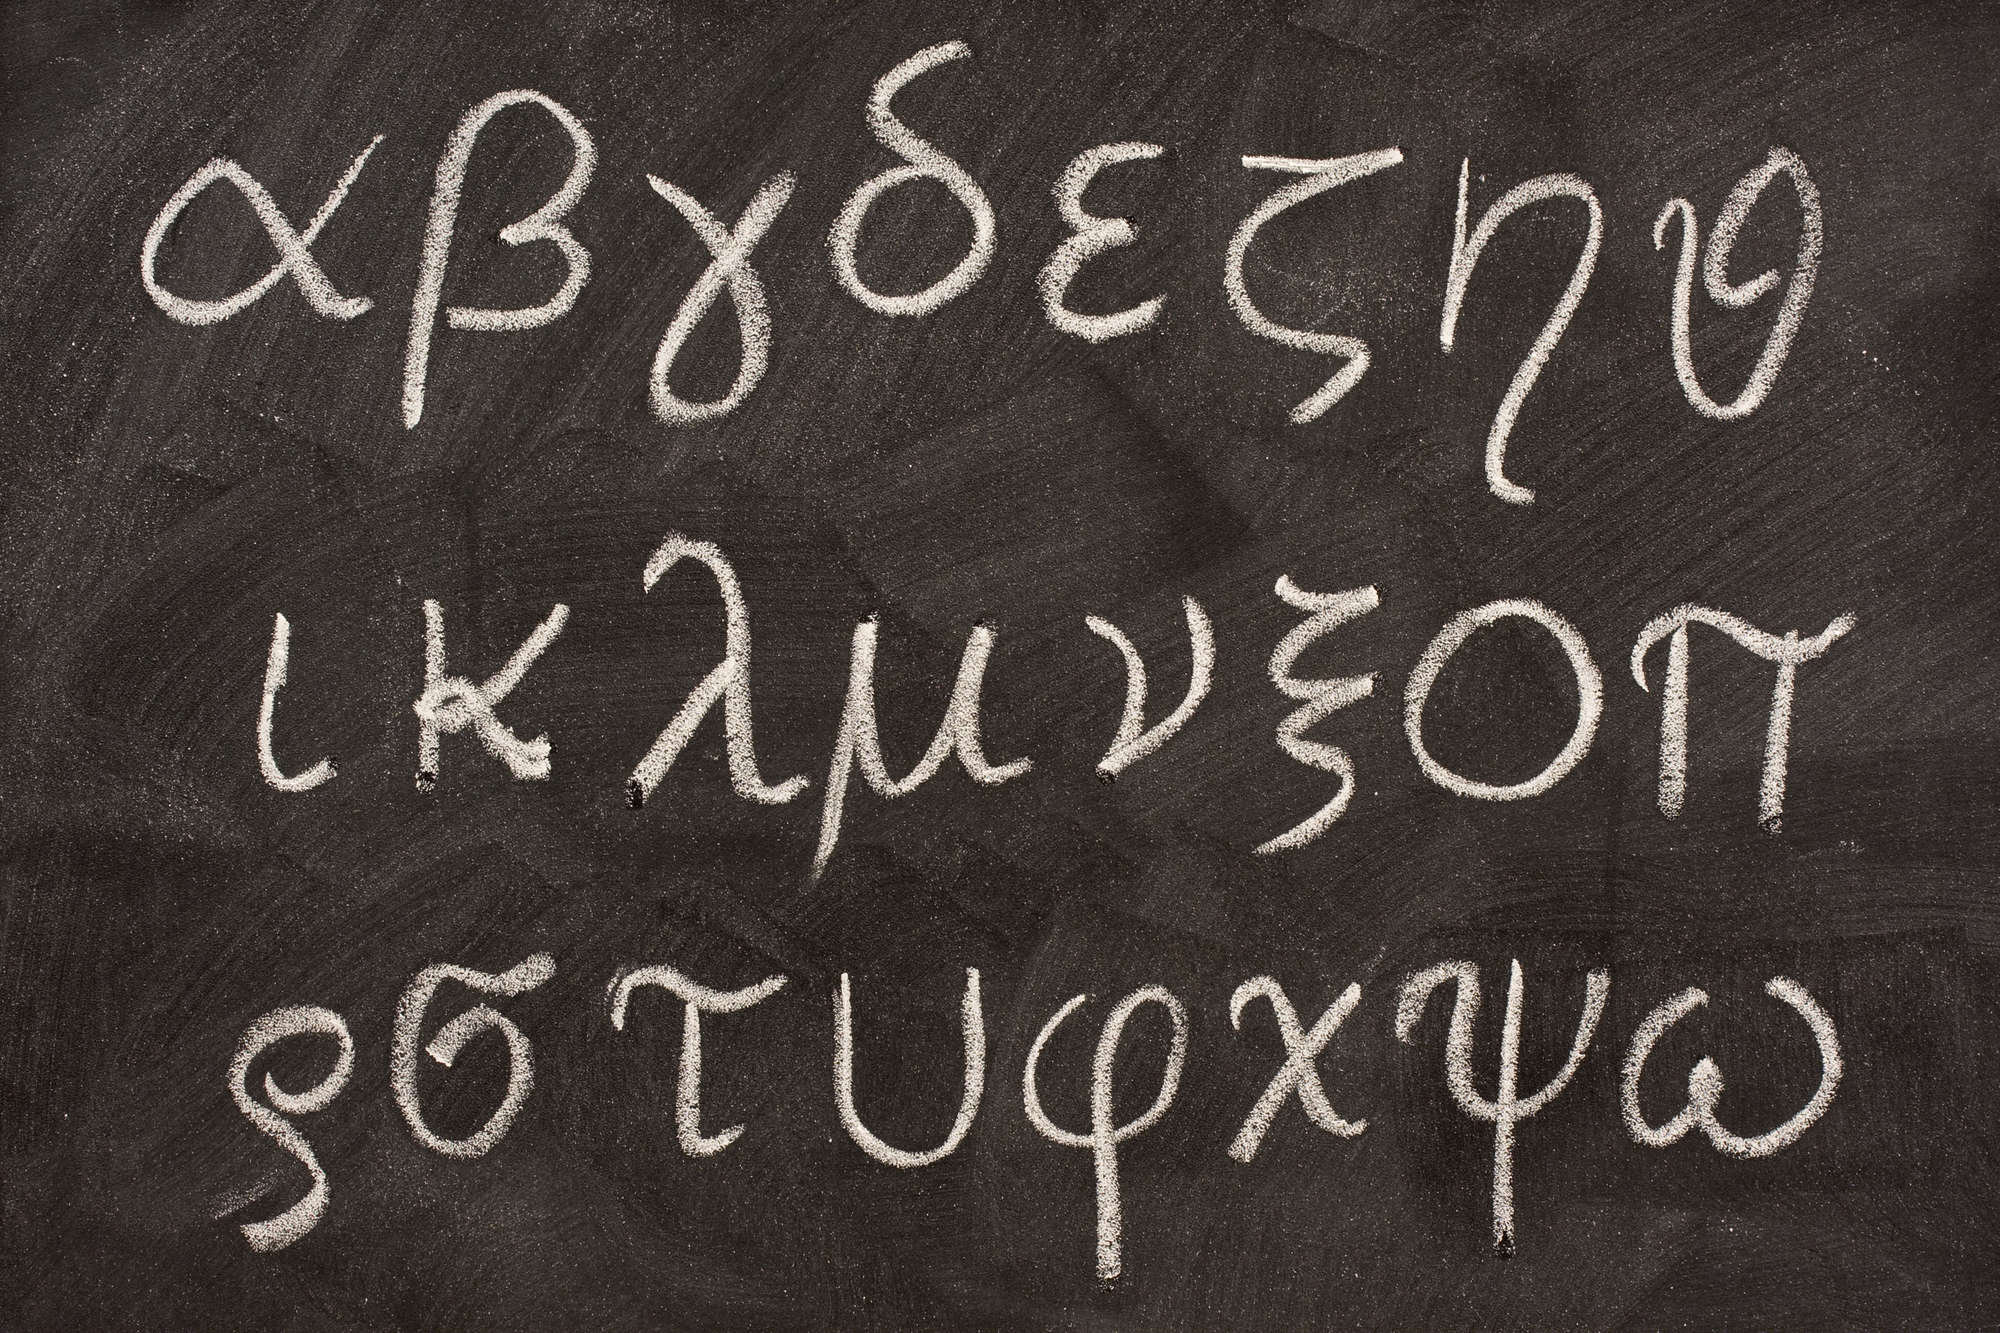 α β γ δ ε ζ η ϑ
ι κ λ μ ν ξ ο π
ϱ σ τ υ φ χ ψ ω